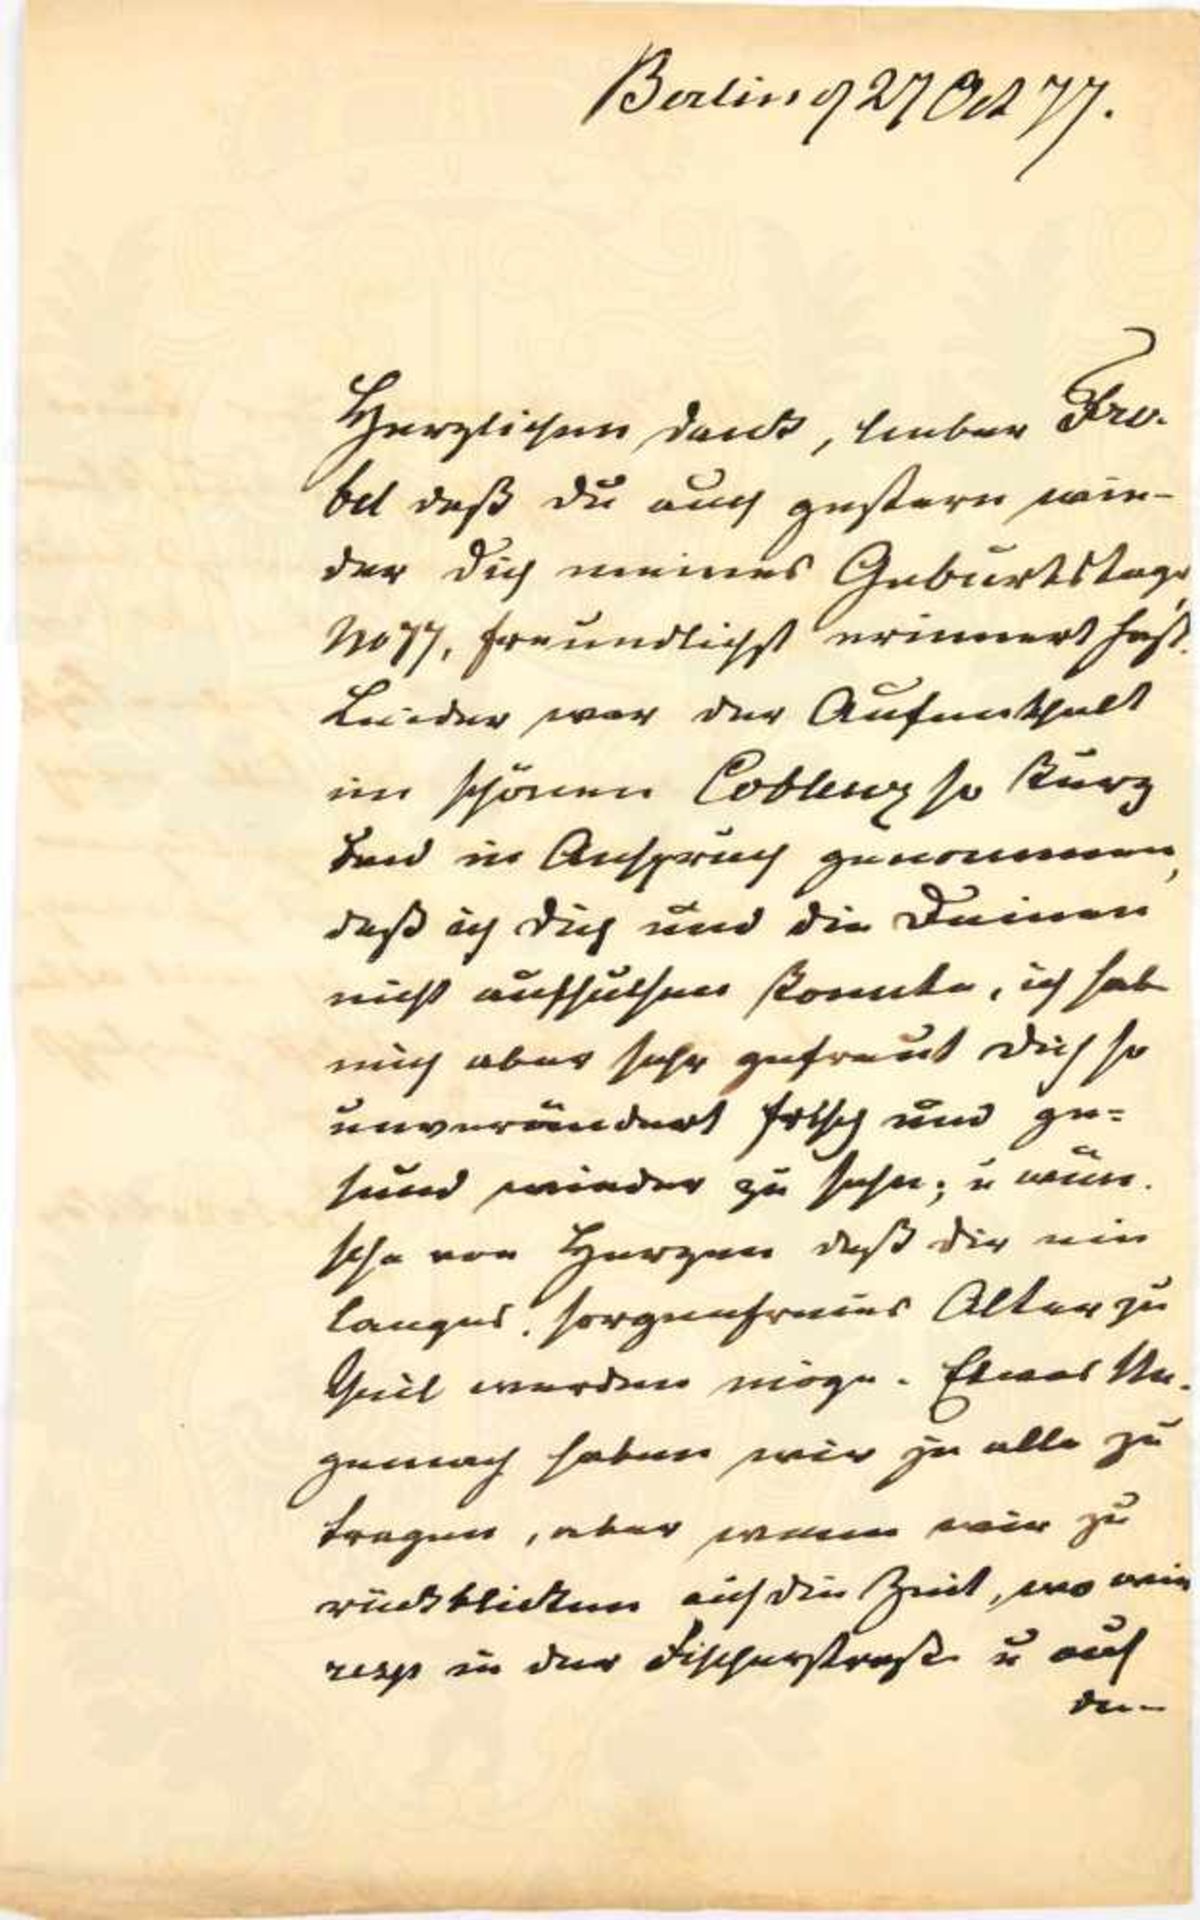 Berlin d 27 Oct 77.
Herzlichen Dank, lieber Stro-
bel daß Du auch gestern wie-
der Dich meines Geburtstags,
No 77, freundlichst erinnert hast.
Leider war der Aufenthalt
im schönen Coblenz so kurz
und in Anspruch genommen,
daß ich Dich und die Deinen
nicht aufsuchen konnte, ich hab
mich aber sehr gefreut Dich so
unverändert frisch und ge=
sund wieder zu sehn; u wün-
sche von Herzen daß Dir ein
langes, sorgenfreies Alter zu
Theil werden möge. Etwas Un-
gemach haben wir ja alle zu
tragen, aber wenn wir zu
rückblicken auf die Zeit, wo wir
resp in der Fischerstraße u auf